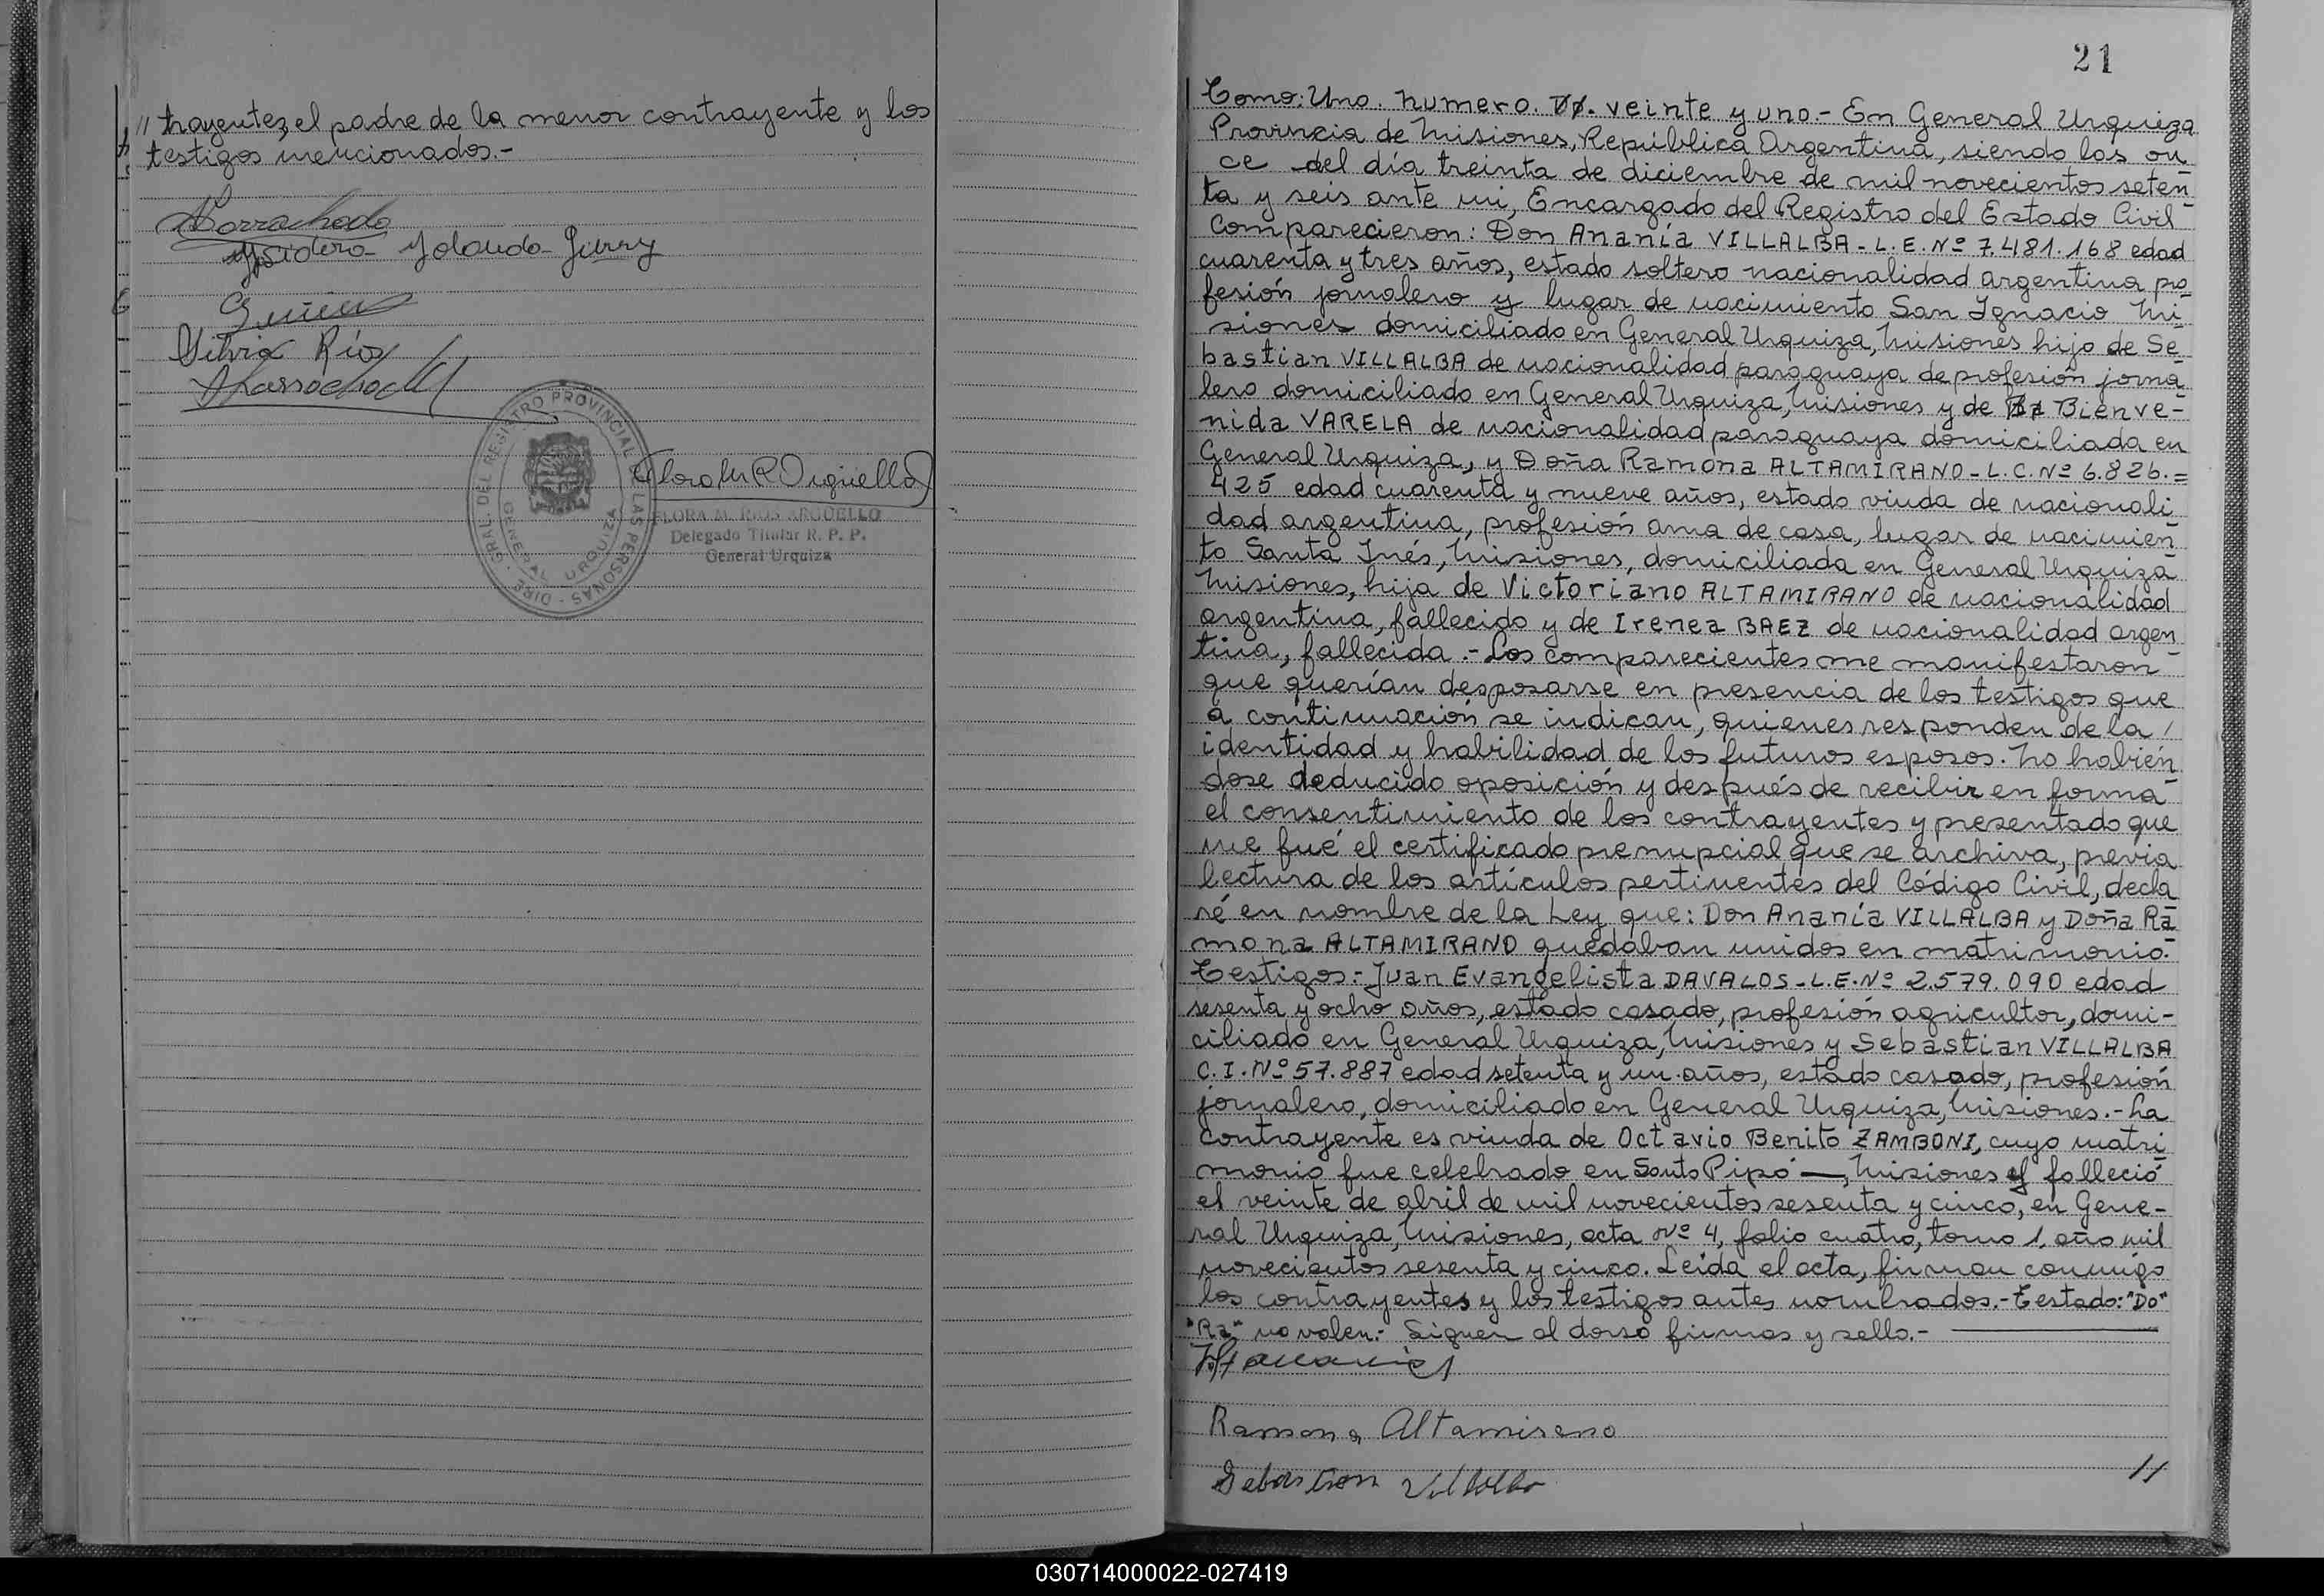 // trayentes, el padre de la menor contrayente y los
testigos mencionados.-
Ysidora Yolanda
Silvia Ríos
DIRE. GRAL. DEL REGISTRO PROVINCIAL DE LAS PERSONAS -
GENERAL URQUIZA
FLORA M. RIOS ARGUELLO
Delegado Titular R. P. P.
General Urquiza
21
Tomo: Uno. Numero. veinte y uno.- En General Urquiza
Provincia de Misiones, República Argentina, siendo las on
ce del día treinta de diciembre de mil novecientos seten
ta y seis ante mi, Encargado del Registro del Estado Civil
Comparecieron: Don Ananía VILLALBA - L.E. Nº 7.481.168 edad
cuarenta y tres años, estado soltero nacionalidad argentina pro
fesión jornalero y lugar de nacimiento San Ignacio Mi
siones domiciliado en General Urquiza, Misiones hijo de Se
bastian VILLALBA de nacionalidad paraguaya de profesión jorna
lero domiciliado en General Urquiza, Misiones y de Bienve-
nida VARELA de nacionalidad paraguaya domiciliada en
General Urquiza, y Doña Ramona ALTAMIRANO - L.C. Nº 6.826.=
425 edad cuarenta y nueve años, estado viuda de nacionali
dad argentina, profesión ama de casa, lugar de nacimien
to Santa Inés, Misiones, domiciliada en General Urquiza
Misiones, hija de Victoriano ALTAMIRANO de nacionalidad
argentina, fallecido y de Irenea BAEZ de nacionalidad argen
tina, fallecida.- Los comparecientes me manifestaron
que querían desposarse en presencia de los testigos que
a continuación se indican, quienes responden de la /
identidad y habilidad de los futuros esposos. No habién
dose deducido oposición y después de recibir en forma
el consentimiento de los contrayentes y presentado que
me fué el certificado prenupcial que se archiva, previa
lectura de los artículos pertinentes del Código Civil, decla
ré en nombre de la Ley que: Don Ananía VILLALBA y Doña Ra
mona ALTAMIRANO quedaban unidos en matrimonio.
Testigos:- Juan Evangelista DAVALOS - L.E. Nº 2.579.090 edad
sesenta y ocho años, estado casado, profesión agricultor, domi-
ciliado en General Urquiza, Misiones y Sebastian VILLALBA
C.I. Nº 57.887 edad setenta y un años, estado casado, profesión
jornalero, domiciliado en General Urquiza, Misiones.- La
contrayente es viuda de Octavio Benito ZAMBONI, cuyo matri
monio fue celebrado en Santo Pipó —, Misiones y falleció
el veinte de abril de mil novecientos sesenta y cinco, en Gene-
ral Urquiza, Misiones, acta Nº 4, folio cuatro, tomo 1, año mil
novecientos sesenta y cinco. Leída el acta, firman conmigo
los contrayentes y los testigos antes nombrados.- Testado: "Do"
"Ra" no valen.- Siguen al dorso firmas y sello.-
Ramona Altamirano
Sebastian Villalba
//
030714000022-027419